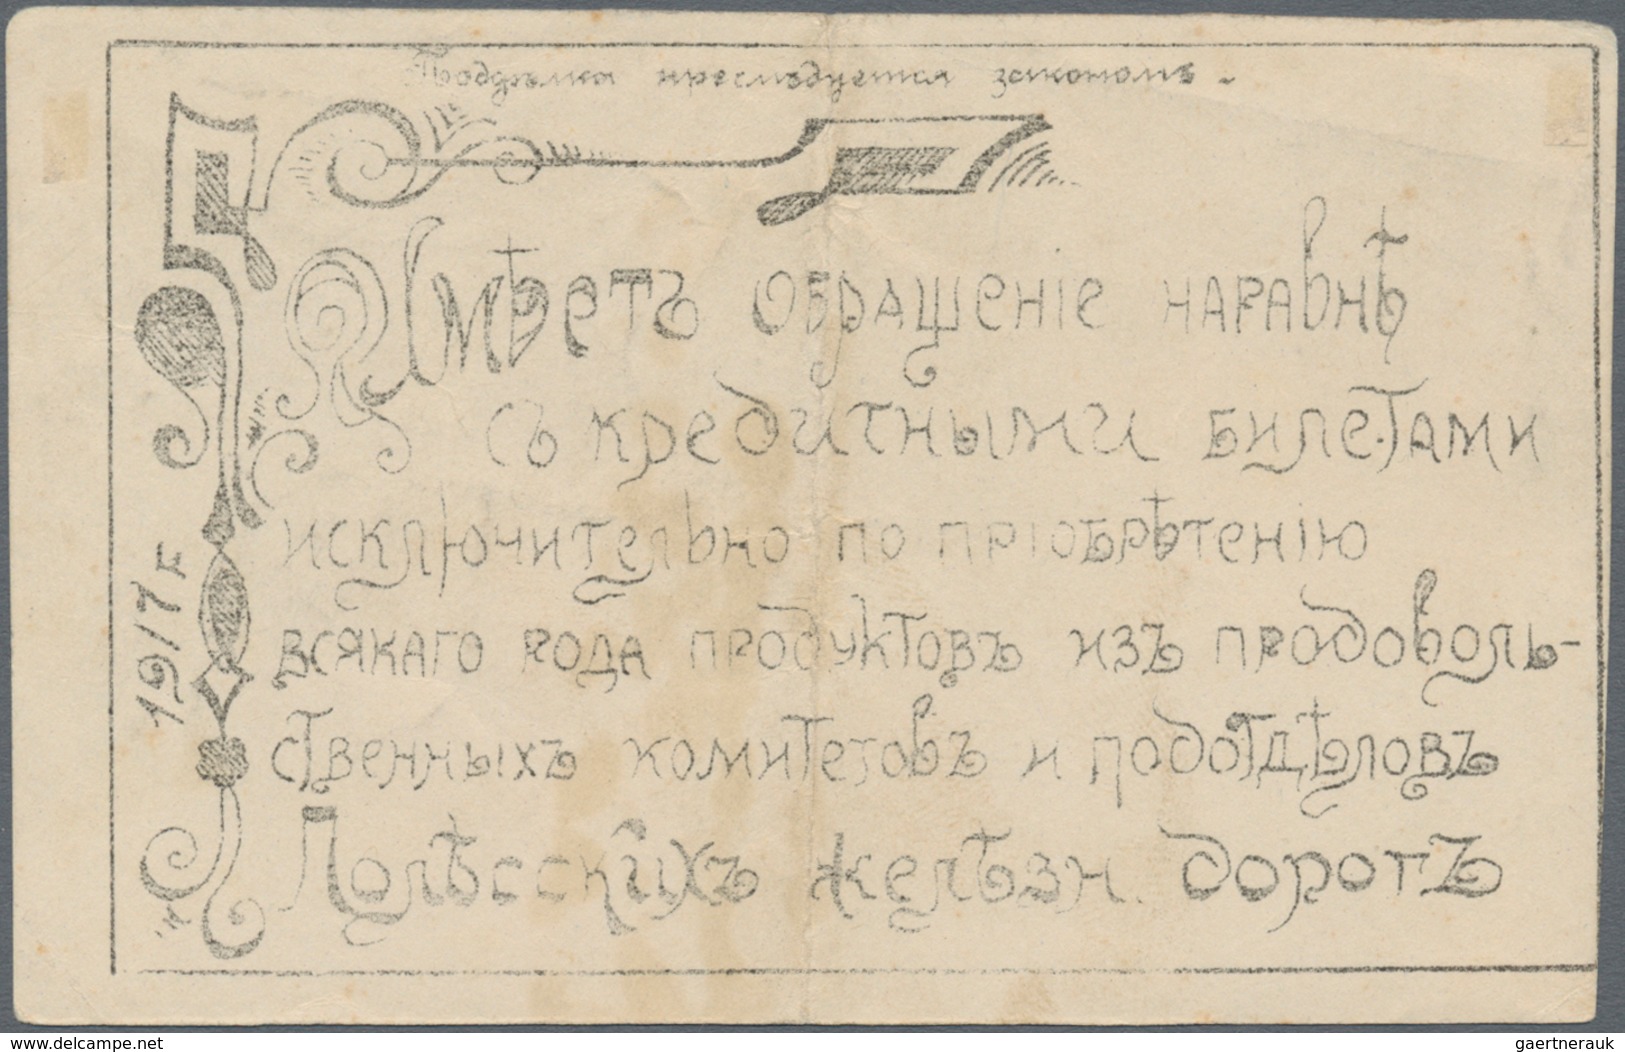 Поддѣлка преслѣдуется закономъ.
5
Имѣетъ обращеніе наравнѣ
съ кредитными билетами
исключительно по пріобрѣтенію
всякаго рода продуктовъ изъ продоволь-
ственныхъ комитетовъ и подотдѣловъ
Полѣсскихъ желѣзн. дорогъ
1917 г
www.delcampe.net
gaertnerauk